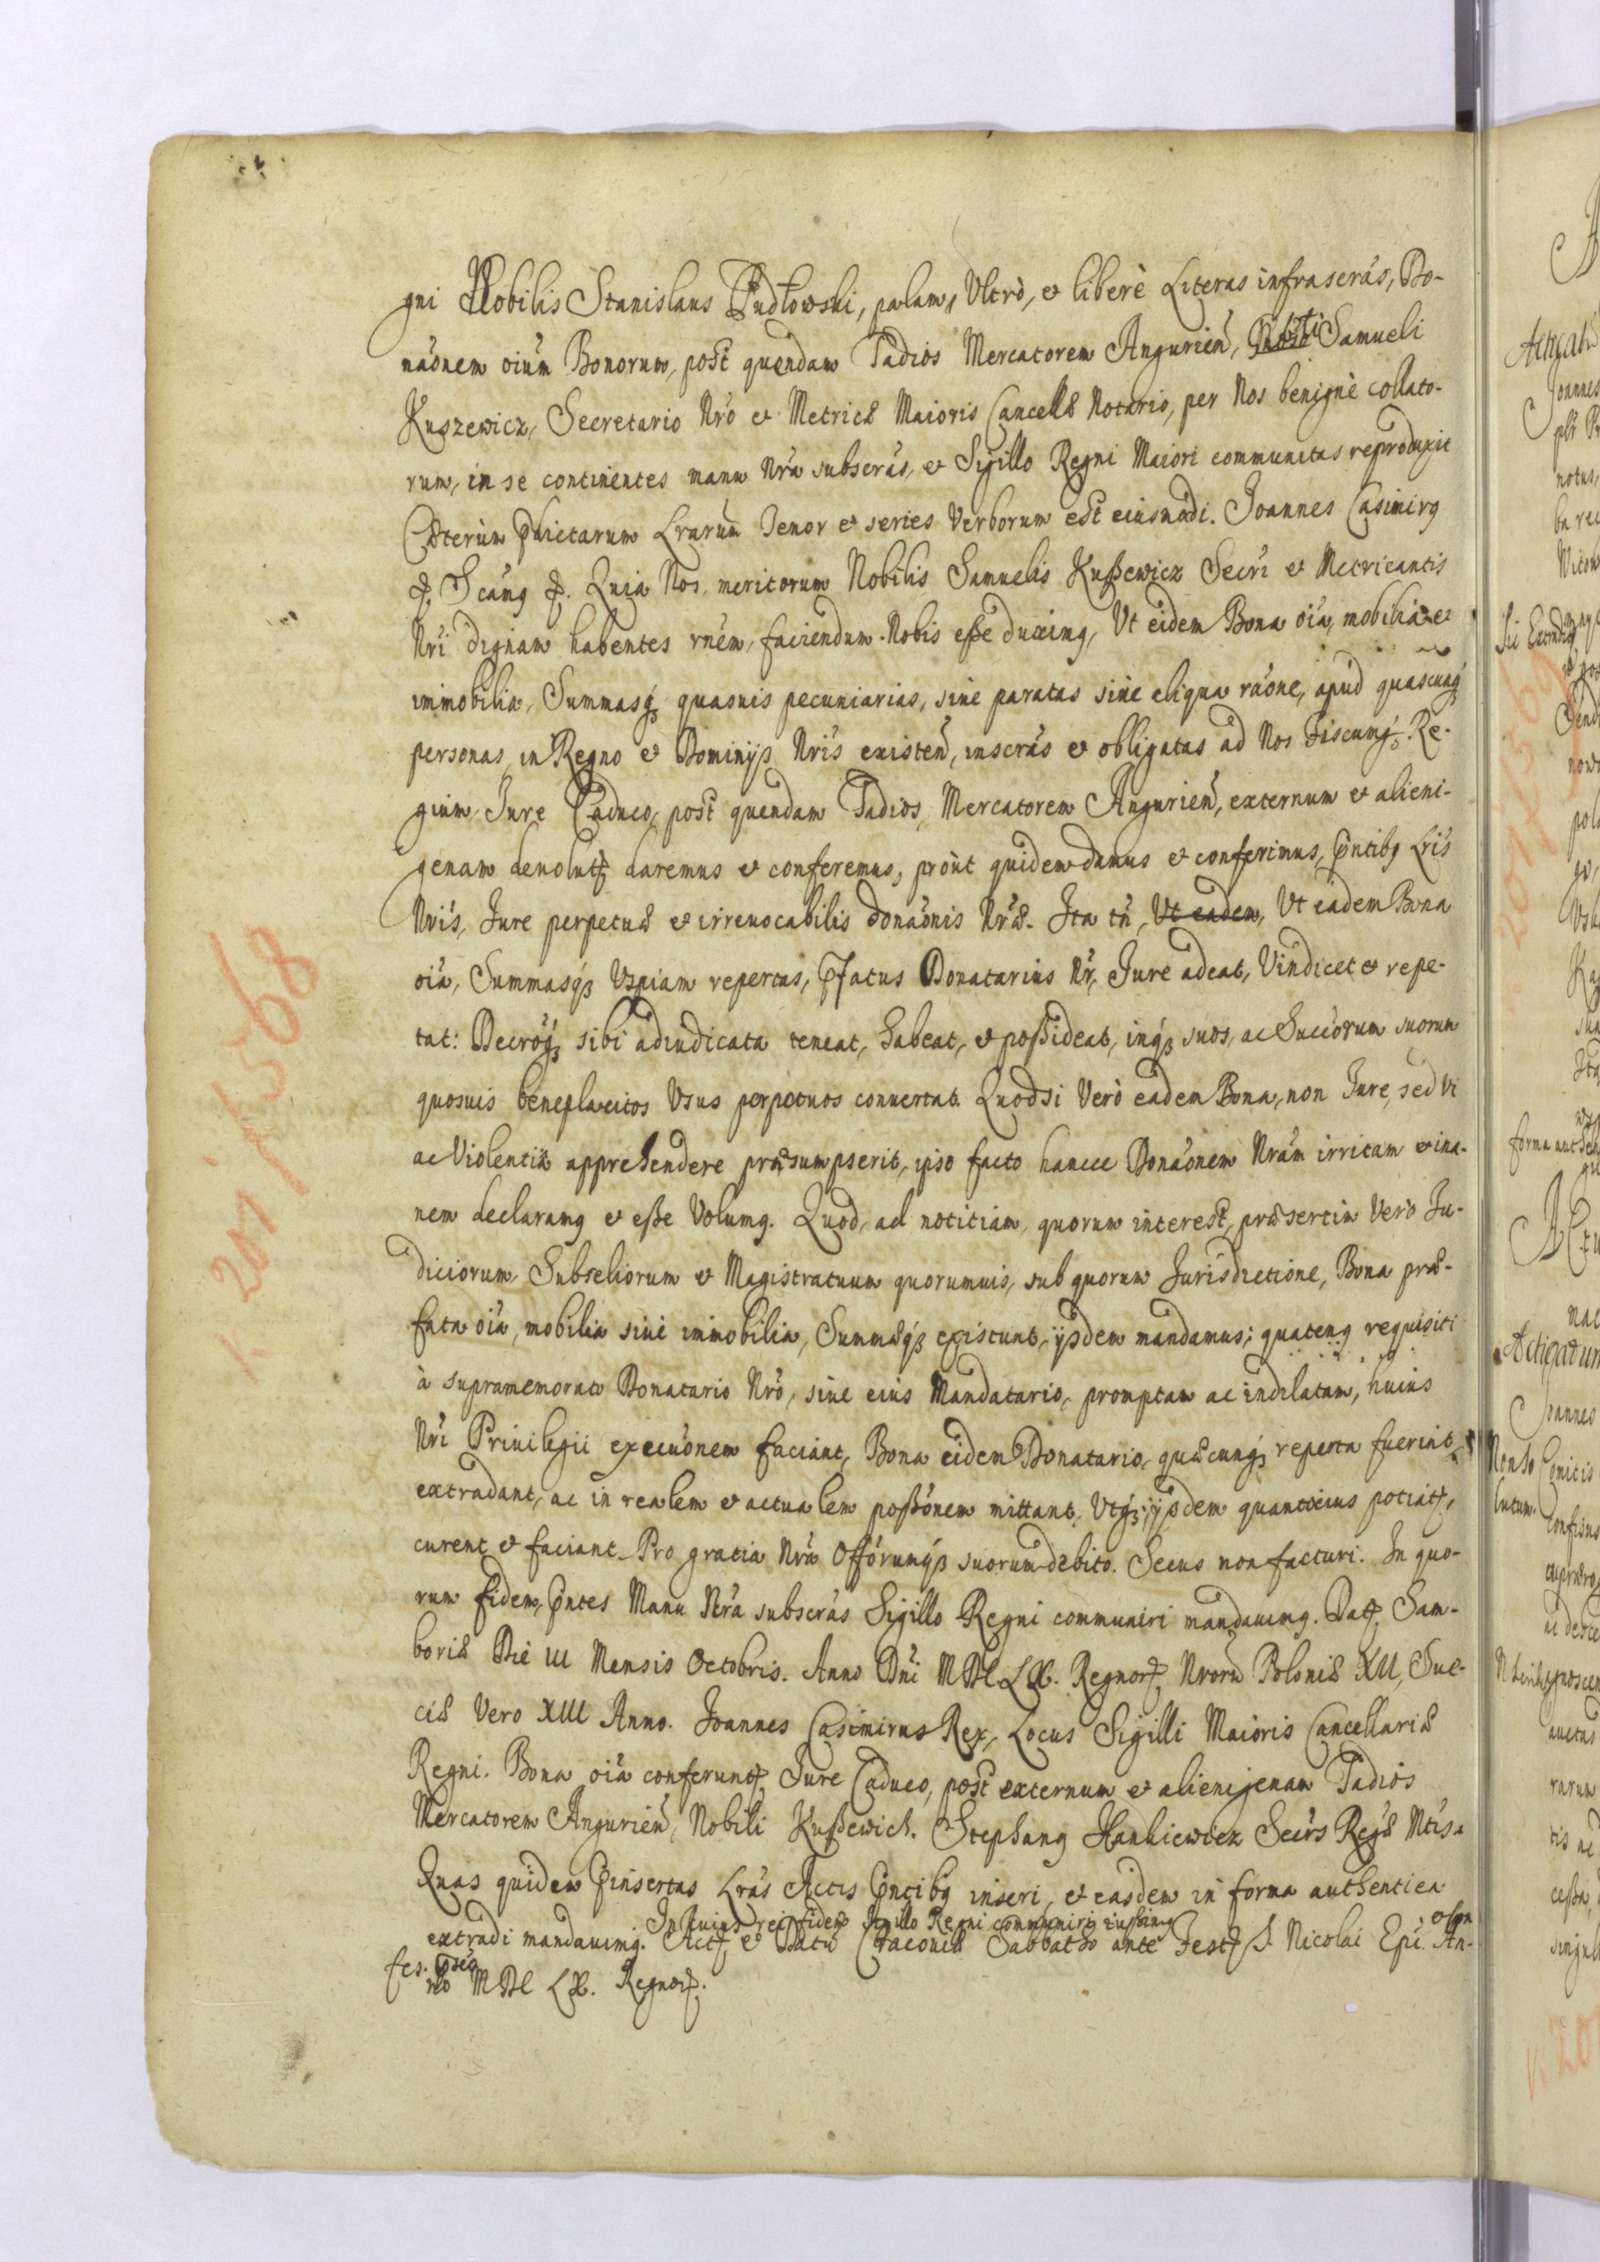 gni Nobilis Stanislaus Pudłowski, palam, Vltrò, et liberè Literas infrascrás, Do-
naónem oiúm Bonorum, post quendam Tadios Mercatorem Angurień, Nobili Samueli
Kuszewicz, Secretario Nró et Metricæ Maioris Cancellæ Notario, per Nos benignè collato-
rum, in se continentes manu Nrá subscrás, et Sigillo Regni Maiori communitas reproduxit
Cæterùm phietarum Lrarum Tenor et series Verborum est eiusmodi. Joannes Casimirus
Quia Nos, meritorum Nobilis Samuelis Kußewicz Secrí et Metricantis
Nri dignam habentes rném, faciendum Nobis eße duximus, Vt eidem Bona oiá, mobilia et
immobilia, Summasq quasuis pecuniarias, siue paratas siue aliqua ráone, apud quascunq
personas in Regno et Dominijs Nrís existeń, inscrás et obligatas ad Nos Fiscumq Re-
gium Jure Caduco, post quendam Tadios, Mercatorem Angurień, externum et alieni-
genam deuolut daremus et conferemus, proùt quidem damus et conferimus, pntibus Lrís
Nrís, Jure perpetuæ et irreuocabilis donaónis Nræ. Ita tń, Vt eadem, Vt eadem Bona
oiá, Summasq Vspiam repertas, pfatus Donatarius Nr, Jure adeat, Vindicet et repe-
tat: Decróq sibi adiudicata teneat, habeat, et poßideat, inq suos, ac Succórum suorum
quosuis beneplacitos Vsus perpetuos conuertat. Quodsi Verò eadem Bona, non Jure, sed Vi
ac Violentiâ apprehendere præsumpserit, ipso facto hancce Donaónem Nrám irritam et ina-
nem declaramus et eße Volumus. Quod, ad notitiam, quorum interest, præsertim Verò Ju-
diciorum, Subseliorum et Magistratuum quorumuis, sub quorum Jurisdictione, Bona præ-
fata oiá, mobilia siue immobilia, Summæq existunt, ijsdem mandamus; quatenus requisiti
à supramemorato Donatario Nró, siue eius Mandatario, promptam ac indilatam, huius
Nri Priuilegii execuónem faciant, Bona eidem Donatario, quæcunq reperta fuerint,
extradant, ac in realem et actualem poßónem mittant, Vtq ijsdem quantocius potiat,
curent et faciant. Pro gratia Nrá Offórumq suorum debito. Secus non facturi. In quo-
rum fidem, pntes Manu Nrá subscrás Sigillo Regni communiri mandauimus. Dat Sam-
boriæ Die III Mensis Octobris. Anno Dni MDCLX. Regnor Nrorum Poloniæ XII, Sue-
ciæ Vero XIII Anno. Joannes Casimirus Rex, Locus Sigilli Maioris Cancellariæ
Regni. Bona oiá conferunt Jure Caduco, post externum et alienigenam Tadios
Mercatorem Angurień, Nobili Kußewich. Stephanus Hankiewicz Secrs Regæ Mtis.
Quas quidem pinsertas Lrás Actis pntibus inseri, et easdem in forma authentica
In huius rei fidem Sigillo Regni communiri iußimus
extradi mandauimus. Act et Datu Cracouiæ Sabbatho ante Fest S. Nicolai Epi An-
no MDC LX. Regnor.
k 201 f 1568